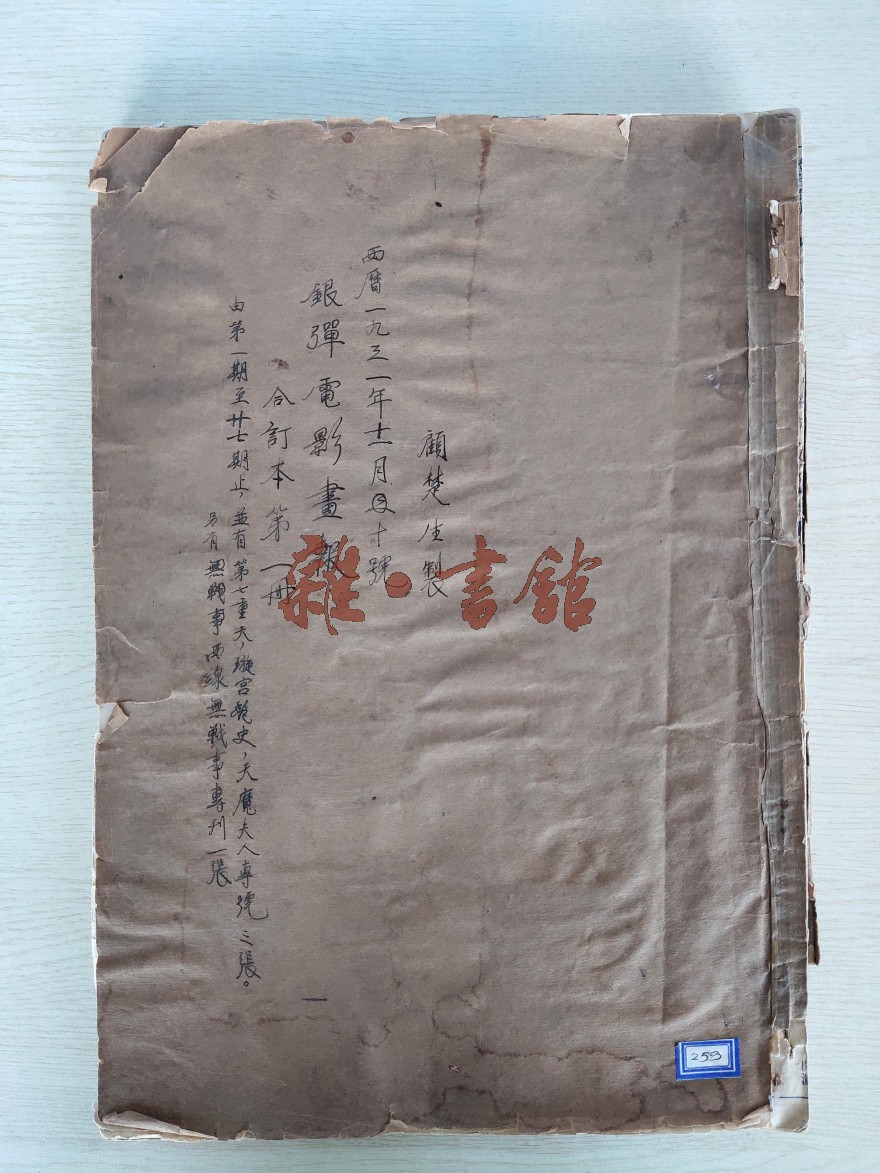 顧楚生製
西曆一九三一年十二月十號
銀彈電影畫報
合訂本第一冊
由第一期至廿七期止,並有第七重天,璇宮艷史,天魔夫人專號三張。
另有無戰事西線無戰事專刊一張
雜·書館
259